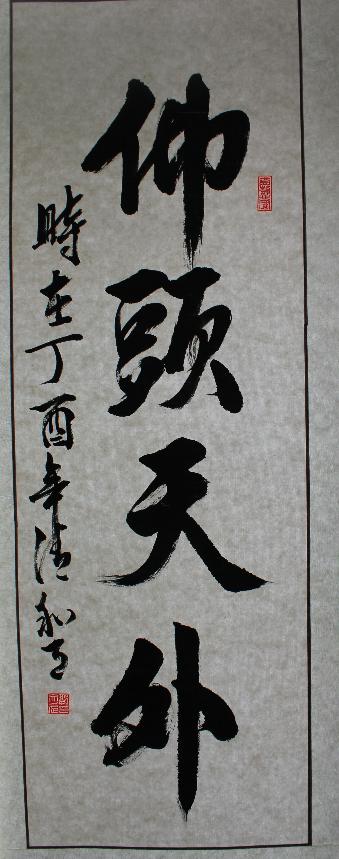 仰頭天外
時在丁酉年清和月